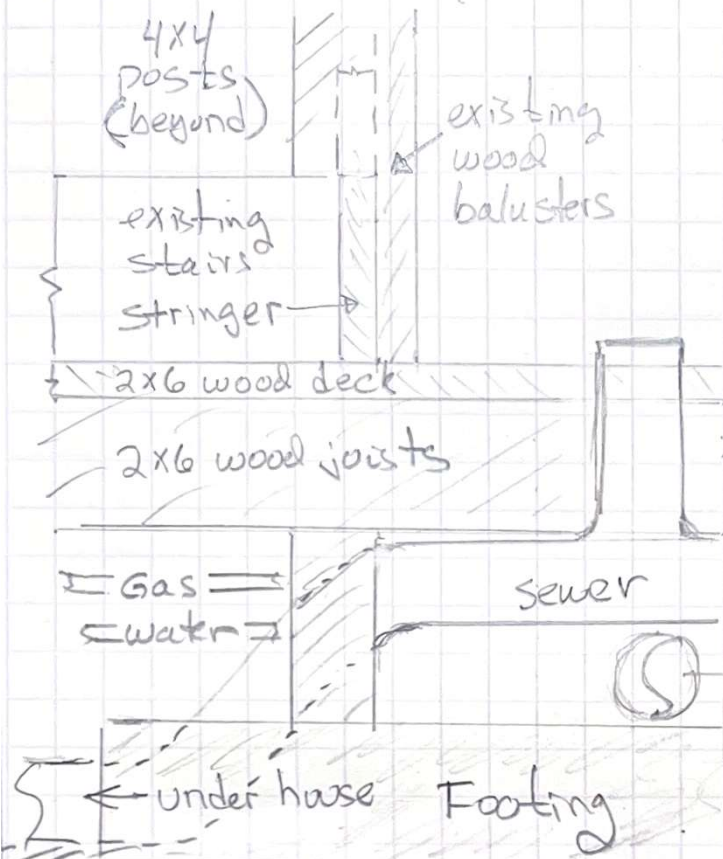 4x4
posts
(beyond)
existing
wood
balusters
existing
stairs
stringer
2x6 wood deck
2x6 wood joists
Gas
water
sewer
S
under house
Footing